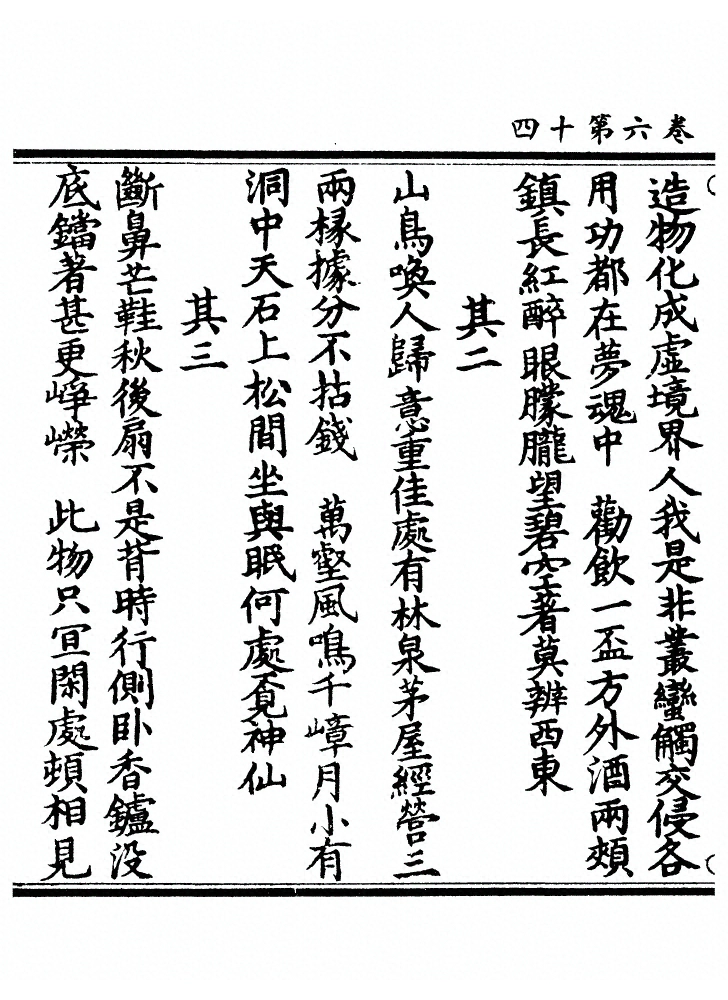 卷六第十四
造物化成虛境界人我是非叢蠻觸交侵各
用功都在夢魂中　勸飲一盃方外酒兩頰
鎮長紅醉眼朦朧望碧空著莫辨西東
其二
山鳥喚人歸意重佳處有林泉茅屋經營三
兩椽據分不拈錢　萬壑風鳴千嶂月小有
洞中天石上松間坐與眠何處覔神仙
其三
斷鼻芒鞋秋後扇不是背時行側卧香鑪没
底鐺著甚更崢嶸　此物只宜閑處頓相見